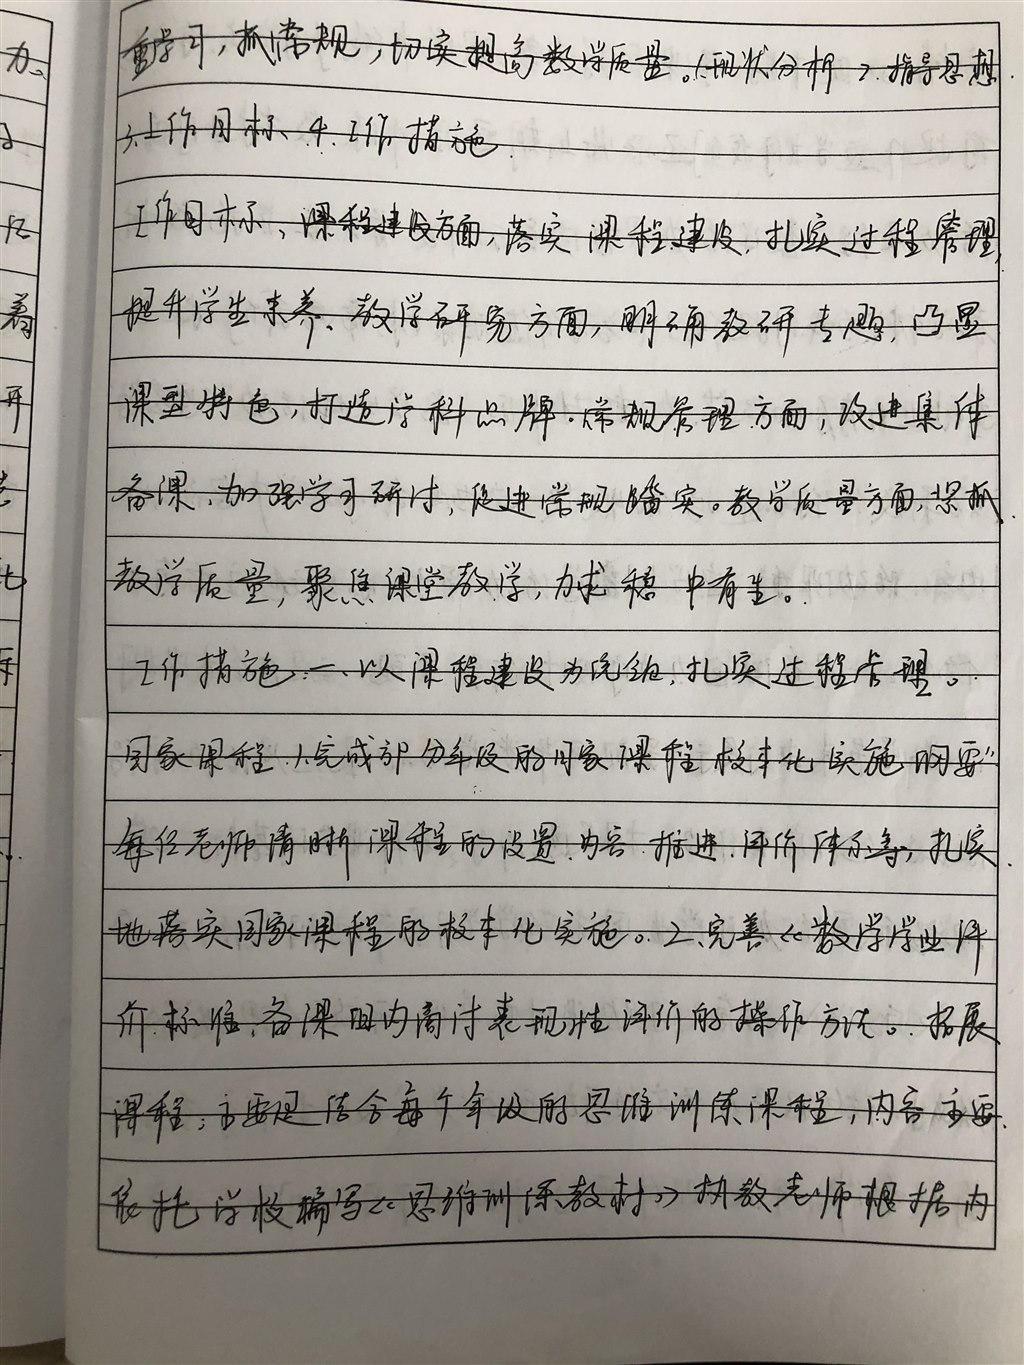 重学习，抓常规，切实提高教学质量。1.现状分析 2.指导思想
3.工作目标、4.工作措施
工作目标、课程建设方面，落实课程建设，扎实过程管理，
提升学生素养、教学研究方面，明确教研专题，凸显
课型特色，打造学科品牌。常规管理方面，改进集体
备课，加强学习研讨，促进常规踏实。教学质量方面，紧抓
教学质量，聚焦课堂教学，力求稳中有生。
工作措施，一、以课程建设为统领，扎实过程管理。
国家课程 1.完成部分年级的国家课程校本化实施纲要”
每位老师清晰课程的设置、内容、推进、评价体系等，扎实
地落实国家课程的校本化实施。2.完善《数学学业评
价标准、备课组内商讨表现性评价的操作方法。拓展
课程：主要是结合每个年级的思维训练课程，内容主要
依托学校编写《思维训练教材》执教老师根据内
力、
着
开